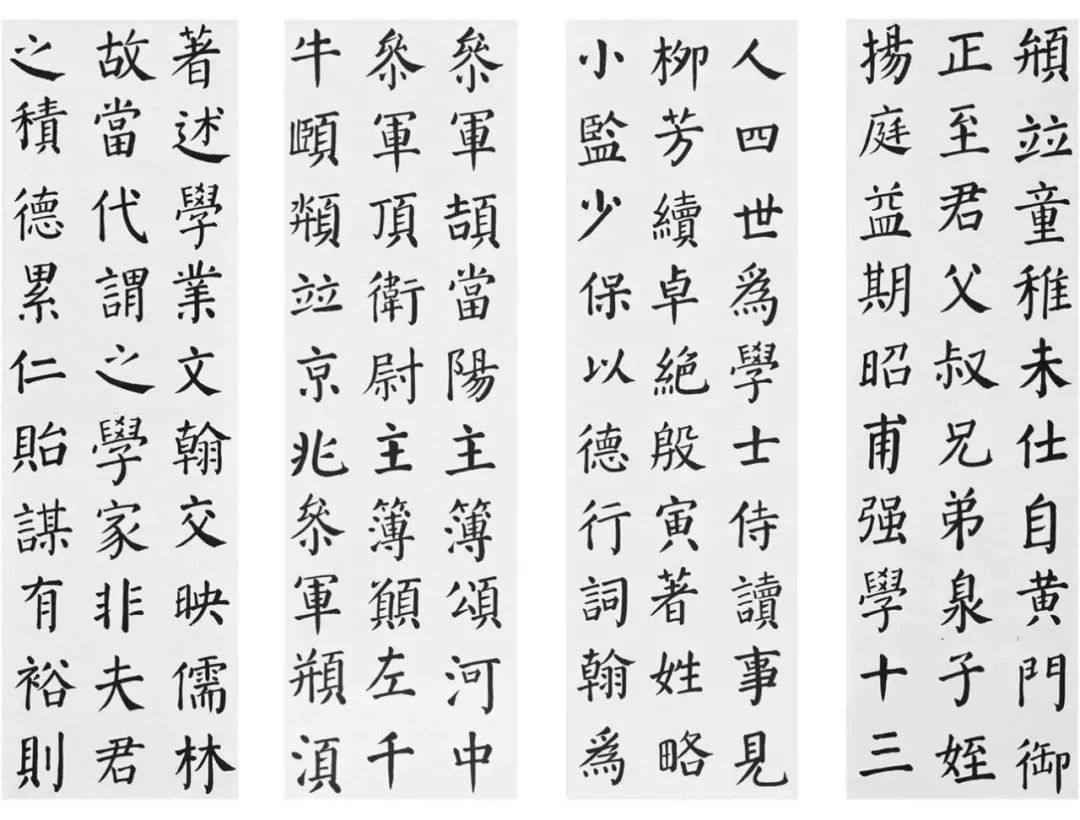 竝童稚未仕自黄門御
正至君父叔兄弟泉子姪
揚庭益期昭甫强學十三
人四世爲學士侍讀事見
柳芳續卓絶殷寅著姓略
小監少保以德行詞翰爲
叅軍頡當陽主簿頌河中
叅軍頂衛尉主簿左千
牛頤頫竝京兆叅軍湏
著述學業文翰交映儒林
故當代謂之學家非夫君
之積德累仁貽謀有裕則